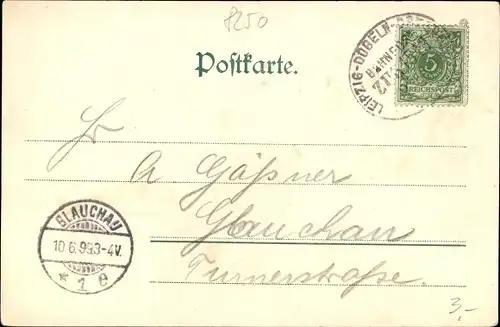 8250
Postkarte.
LEIPZIG-DÖBELN-
BAHNPOST
ZUG
5
REICHSPOST
Hr
A Gäßner
Glauchau
Turnerstraße.
GLAUCHAU
10.6.99.3-4V.
* 1 e
3,-